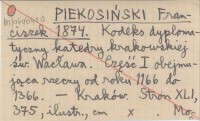 PIEKOSIŃSKI Fran-
ciszek 1874. Kodeks dyploma-
tyczny katedry krakowskiej
św. Wacława. Część I obejmu-
jąca rzeczy od roku 1166 do
1366. — Kraków. Stron XLI,
375, ilustr, cm x . Mo.